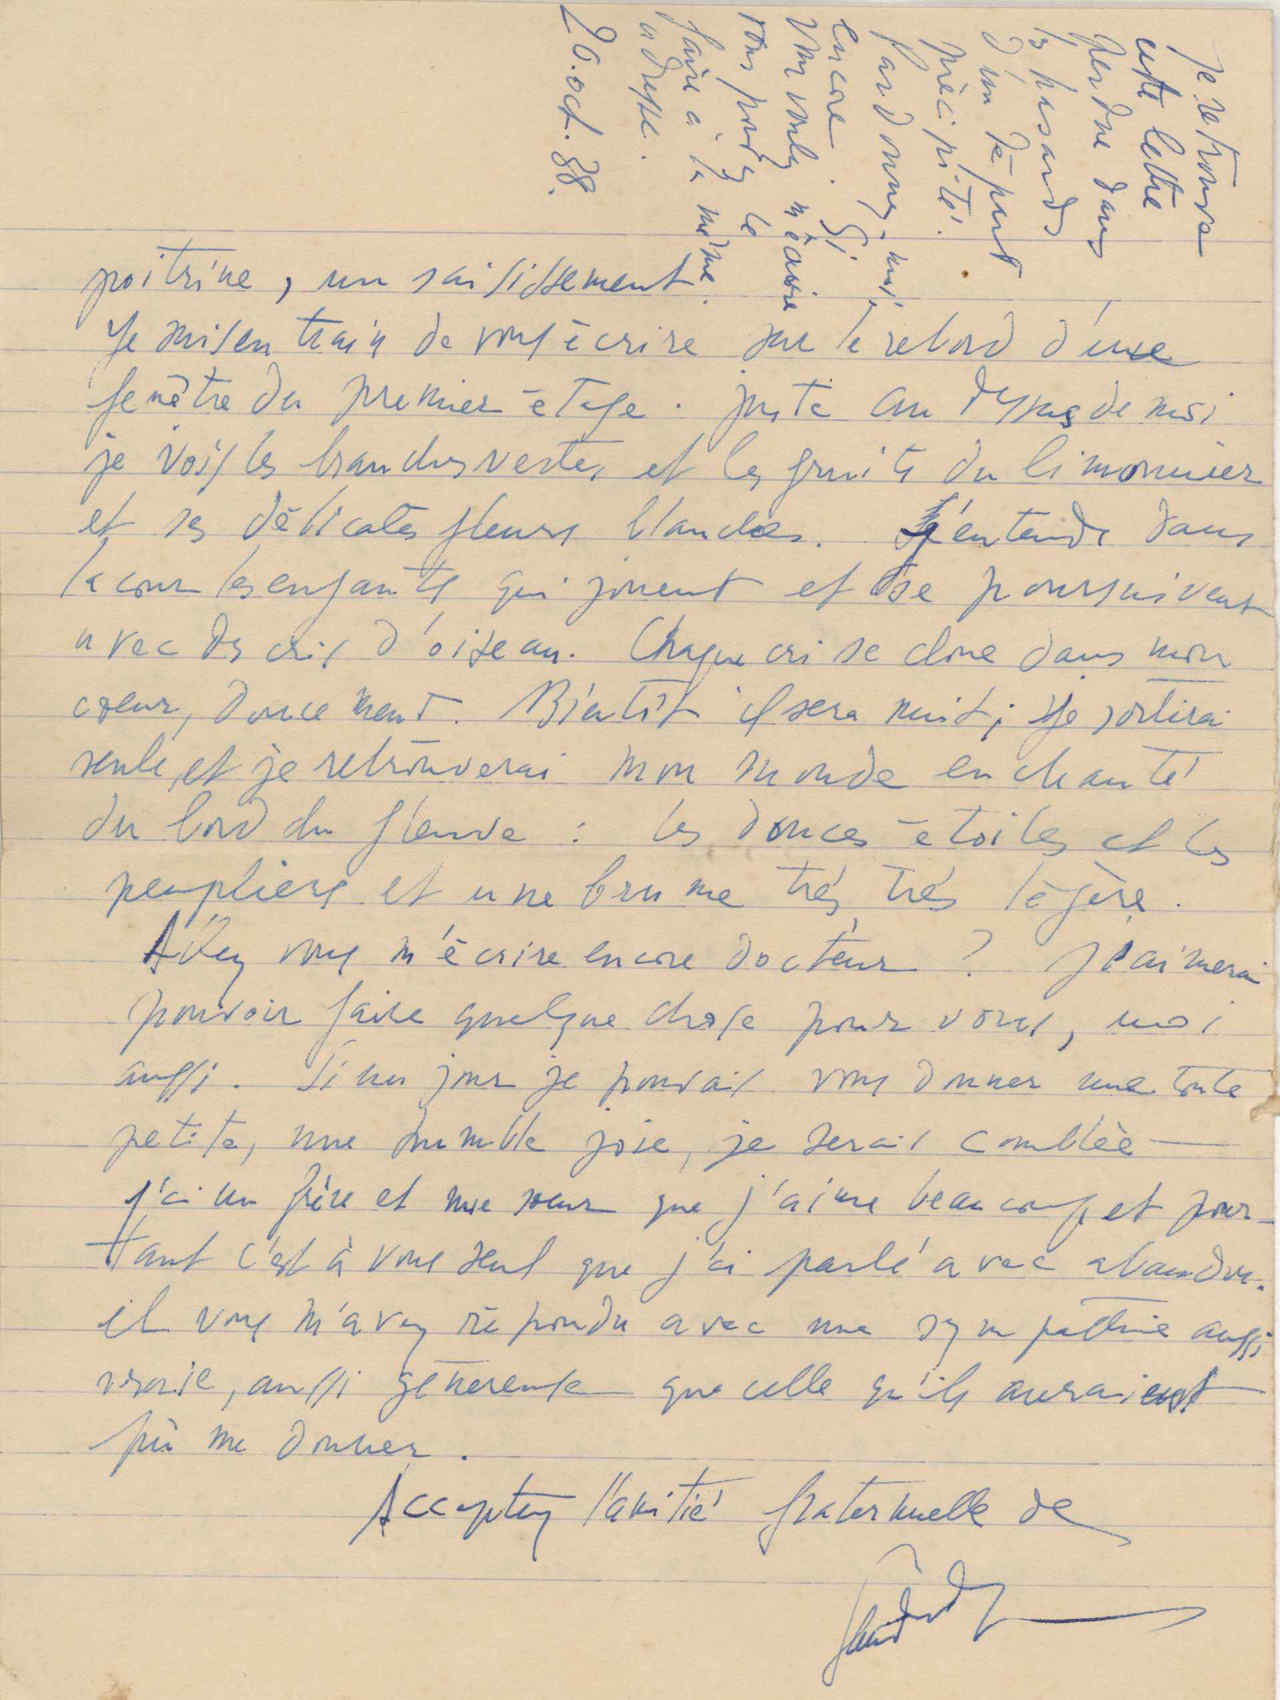 Je retrouve
cette lettre
perdue dans
les hasards
d'un départ
précipité.
Pardonnez-moi
encore. Si
vous voulez m'écrire
vous pouvez le
faire à la même
adresse.
20. oct. 38.
poitrine, un saisissement.
Je suis en train de vous écrire sur le rebord d'une
fenêtre du premier étage. juste au dessus de moi
je vois les branches vertes et les fruits du limonnier
et ses délicates fleurs blanches. J'entends dans
la cour les enfants qui jouent et se poursuivent
avec des cris d'oiseau. Chaque cri se cloue dans mon
cœur, doucement. Bientôt il sera nuit; je sortirai
seule, et je retrouverai mon monde enchanté
du bord du fleuve : les douces étoiles et les
peupliers et une brume très, très légère.
Allez vous m'écrire encore docteur ? J'aimerai
pouvoir faire quelque chose pour vous, moi
aussi. Si un jour je pouvais vous donner une toute
petite, une humble joie, je serais comblée —
J'ai un frère et une sœur que j'aime beaucoup et pour-
tant c'est à vous seul que j'ai parlé avec abandon.
et vous m'avez répondu avec une sympathie aussi
vraie, aussi généreuse que celle qu'ils auraient
pû me donner.
Acceptez l'amitié fraternelle de